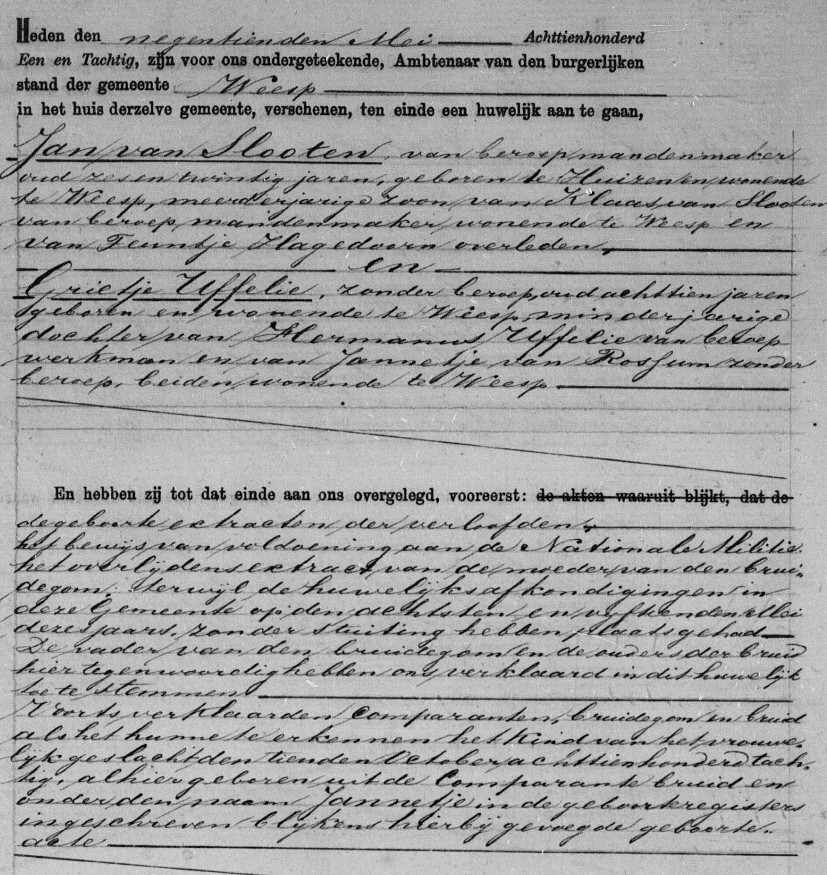 Heden den negentienden Mei Achttienhonderd
Een en Tachtig, zijn voor ons ondergeteekende, Ambtenaar van den burgerlijken
stand der gemeente Weesp
in het huis derzelve gemeente, verschenen, ten einde een huwelijk aan te gaan,
Jan van Slooten, van beroep mandenmaker
oud zes en twintig jaren, geboren te Huizen en wonende
te Weesp, meerderjarige zoon van Klaas van Slooten
van beroep mandenmaker, wonende te Weesp en
van Teuntje Hagedoorn overleden,
en
Grietje Uffelie, zonder beroep, oud achttien jaren
geboren en wonende te Weesp, minderjarige
dochter van Hermanus Uffelie van beroep
werkman en van Jannetje van Rossum zonder
beroep, beiden wonende te Weesp
En hebben zij tot dat einde aan ons overgelegd, vooreerst: de akten waaruit blijkt, dat de
de geboorte extracten der verloofden,
het bewijs van voldoening aan de Nationale Militie
het overlijdens extract van de moeder van den brui-
degom, terwijl de huwelijks afkondigingen in
deze Gemeente op den achtsten en vijftienden Mei
dezes jaars, zonder stuiting hebben plaats gehad
De vader van den bruidegom en de ouders der bruid
hier tegenwoordig hebben ons verklaard in dit huwelijk
toe te stemmen
Voorts verklaarden Comparanten, bruidegom en bruid
als het hunne te erkennen het kind van het vrouwe-
lijk geslacht den tienden October achttienhonderd tach-
tig, alhier geboren uit de Comparante bruid en
onder den naam Jannetje in de geboorteregisters
ingeschreven blijkens hierbij gevoegde geboorte-
acte